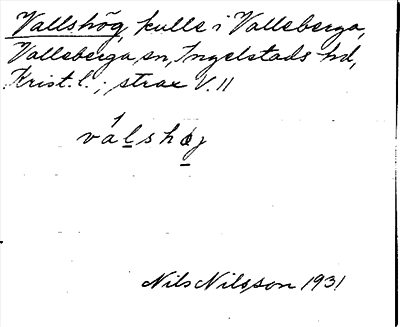 Vallshög, kulle i Valleberga,
Valleberga sn, Ingelstads hd,
Krist. l.; strax V. 11
válshøj
Nils Nilsson 1931